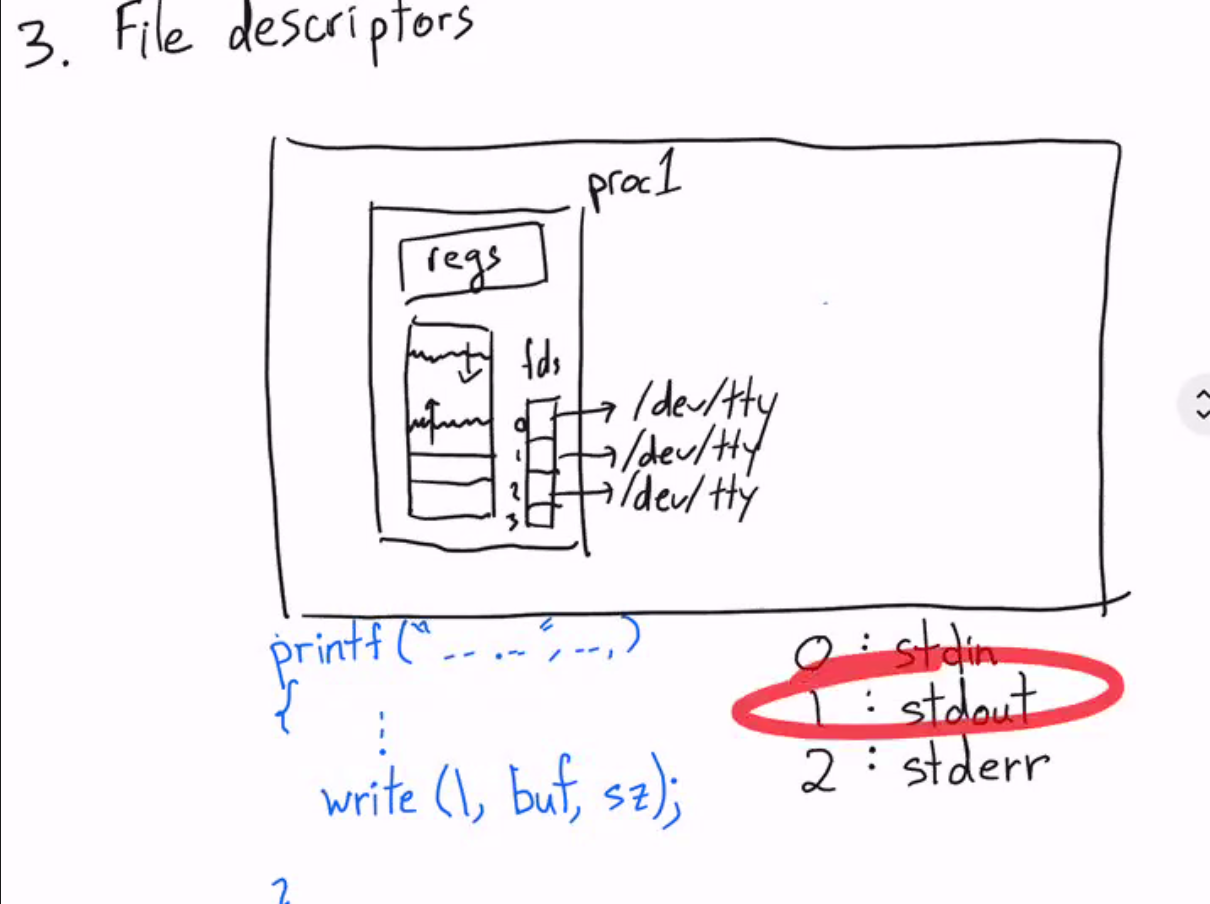 3. File descriptors
proc1
regs
fds
0 /dev/tty
1 /dev/tty
2 /dev/tty
3
printf("-- .-- ", --,)
{
write (1, buf, sz);
0 : stdin
1 : stdout
2 : stderr